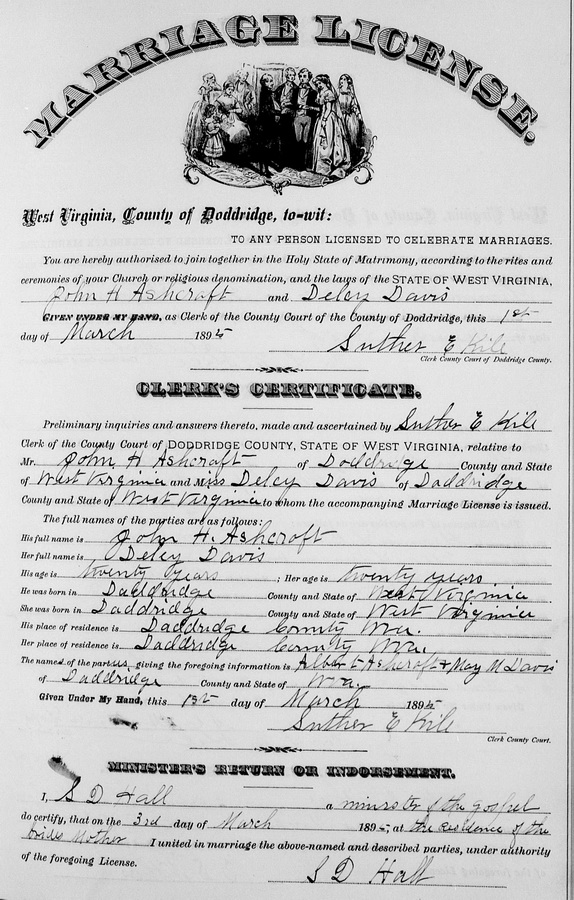 MARRIAGE LICENSE.
West Virginia, County of Doddridge, to-wit:
TO ANY PERSON LICENSED TO CELEBRATE MARRIAGES.
You are hereby authorised to join together in the Holy State of Matrimony, according to the rites and
ceremonies of your Church or religious denomination, and the laws of the STATE OF WEST VIRGINIA,
John H Ashcraft and Delcy Davis
GIVEN UNDER MY HAND, as Clerk of the County Court of the County of Doddridge, this 1st
day of March 1895 Suther E Kile
Clerk County Court of Doddridge County.
CLERK'S CERTIFICATE.
Preliminary inquiries and answers thereto, made and ascertained by Suther E Kile
Clerk of the County Court of DODDRIDGE COUNTY, STATE OF WEST VIRGINIA, relative to
Mr. John H Ashcraft of Doddridge County and State
of West Virginia and Miss Delcy Davis of Daddridge
County and State of West Virginia to whom the accompanying Marriage License is issued.
The full names of the parties are as follows:
His full name is John H. Ashcraft
Her full name is Delcy Davis
His age is twenty years ; Her age is twenty years
He was born in Daddridge County and State of West Virginia
She was born in Daddridge County and State of West Virginia
His place of residence is Daddridge County Wva.
Her place of residence is Daddridge County Wva.
The names of the parties giving the foregoing information is Albert Ashcraft & May M Davis
of Daddridge County and State of Wva.
Given Under My Hand, this 1st day of March 1895
Suther E Kile
Clerk County Court.
MINISTER'S RETURN OR INDORSEMENT.
I, S D Hall a minister of the Gospel
do certify, that on the 3rd day of March 1895, at the residence of the
brides Mother I united in marriage the above-named and described parties, under authority
of the foregoing License.
S D Hall